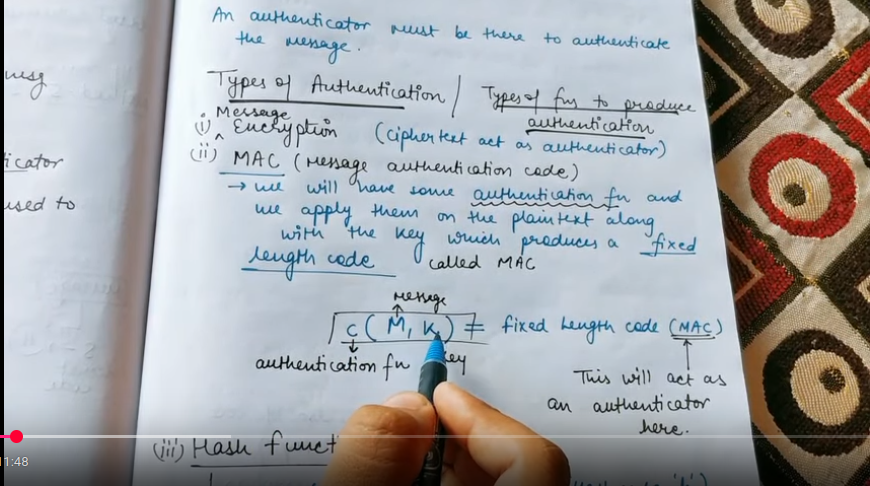 An authenticator must be there to authenticate
the message.
Types of Authentication / Types of fns to produce
authentication
(i) Message Encryption (ciphertext act as authenticator)
(ii) MAC (Message authentication code)
→ we will have some authentication fn and
we apply them on the plaintext along
with the key which produces a fixed
length code called MAC
message
C (M, K) = fixed length code (MAC)
authentication fn key
This will act as
an authenticator
here.
(iii) Hash
msg
used to
11:48